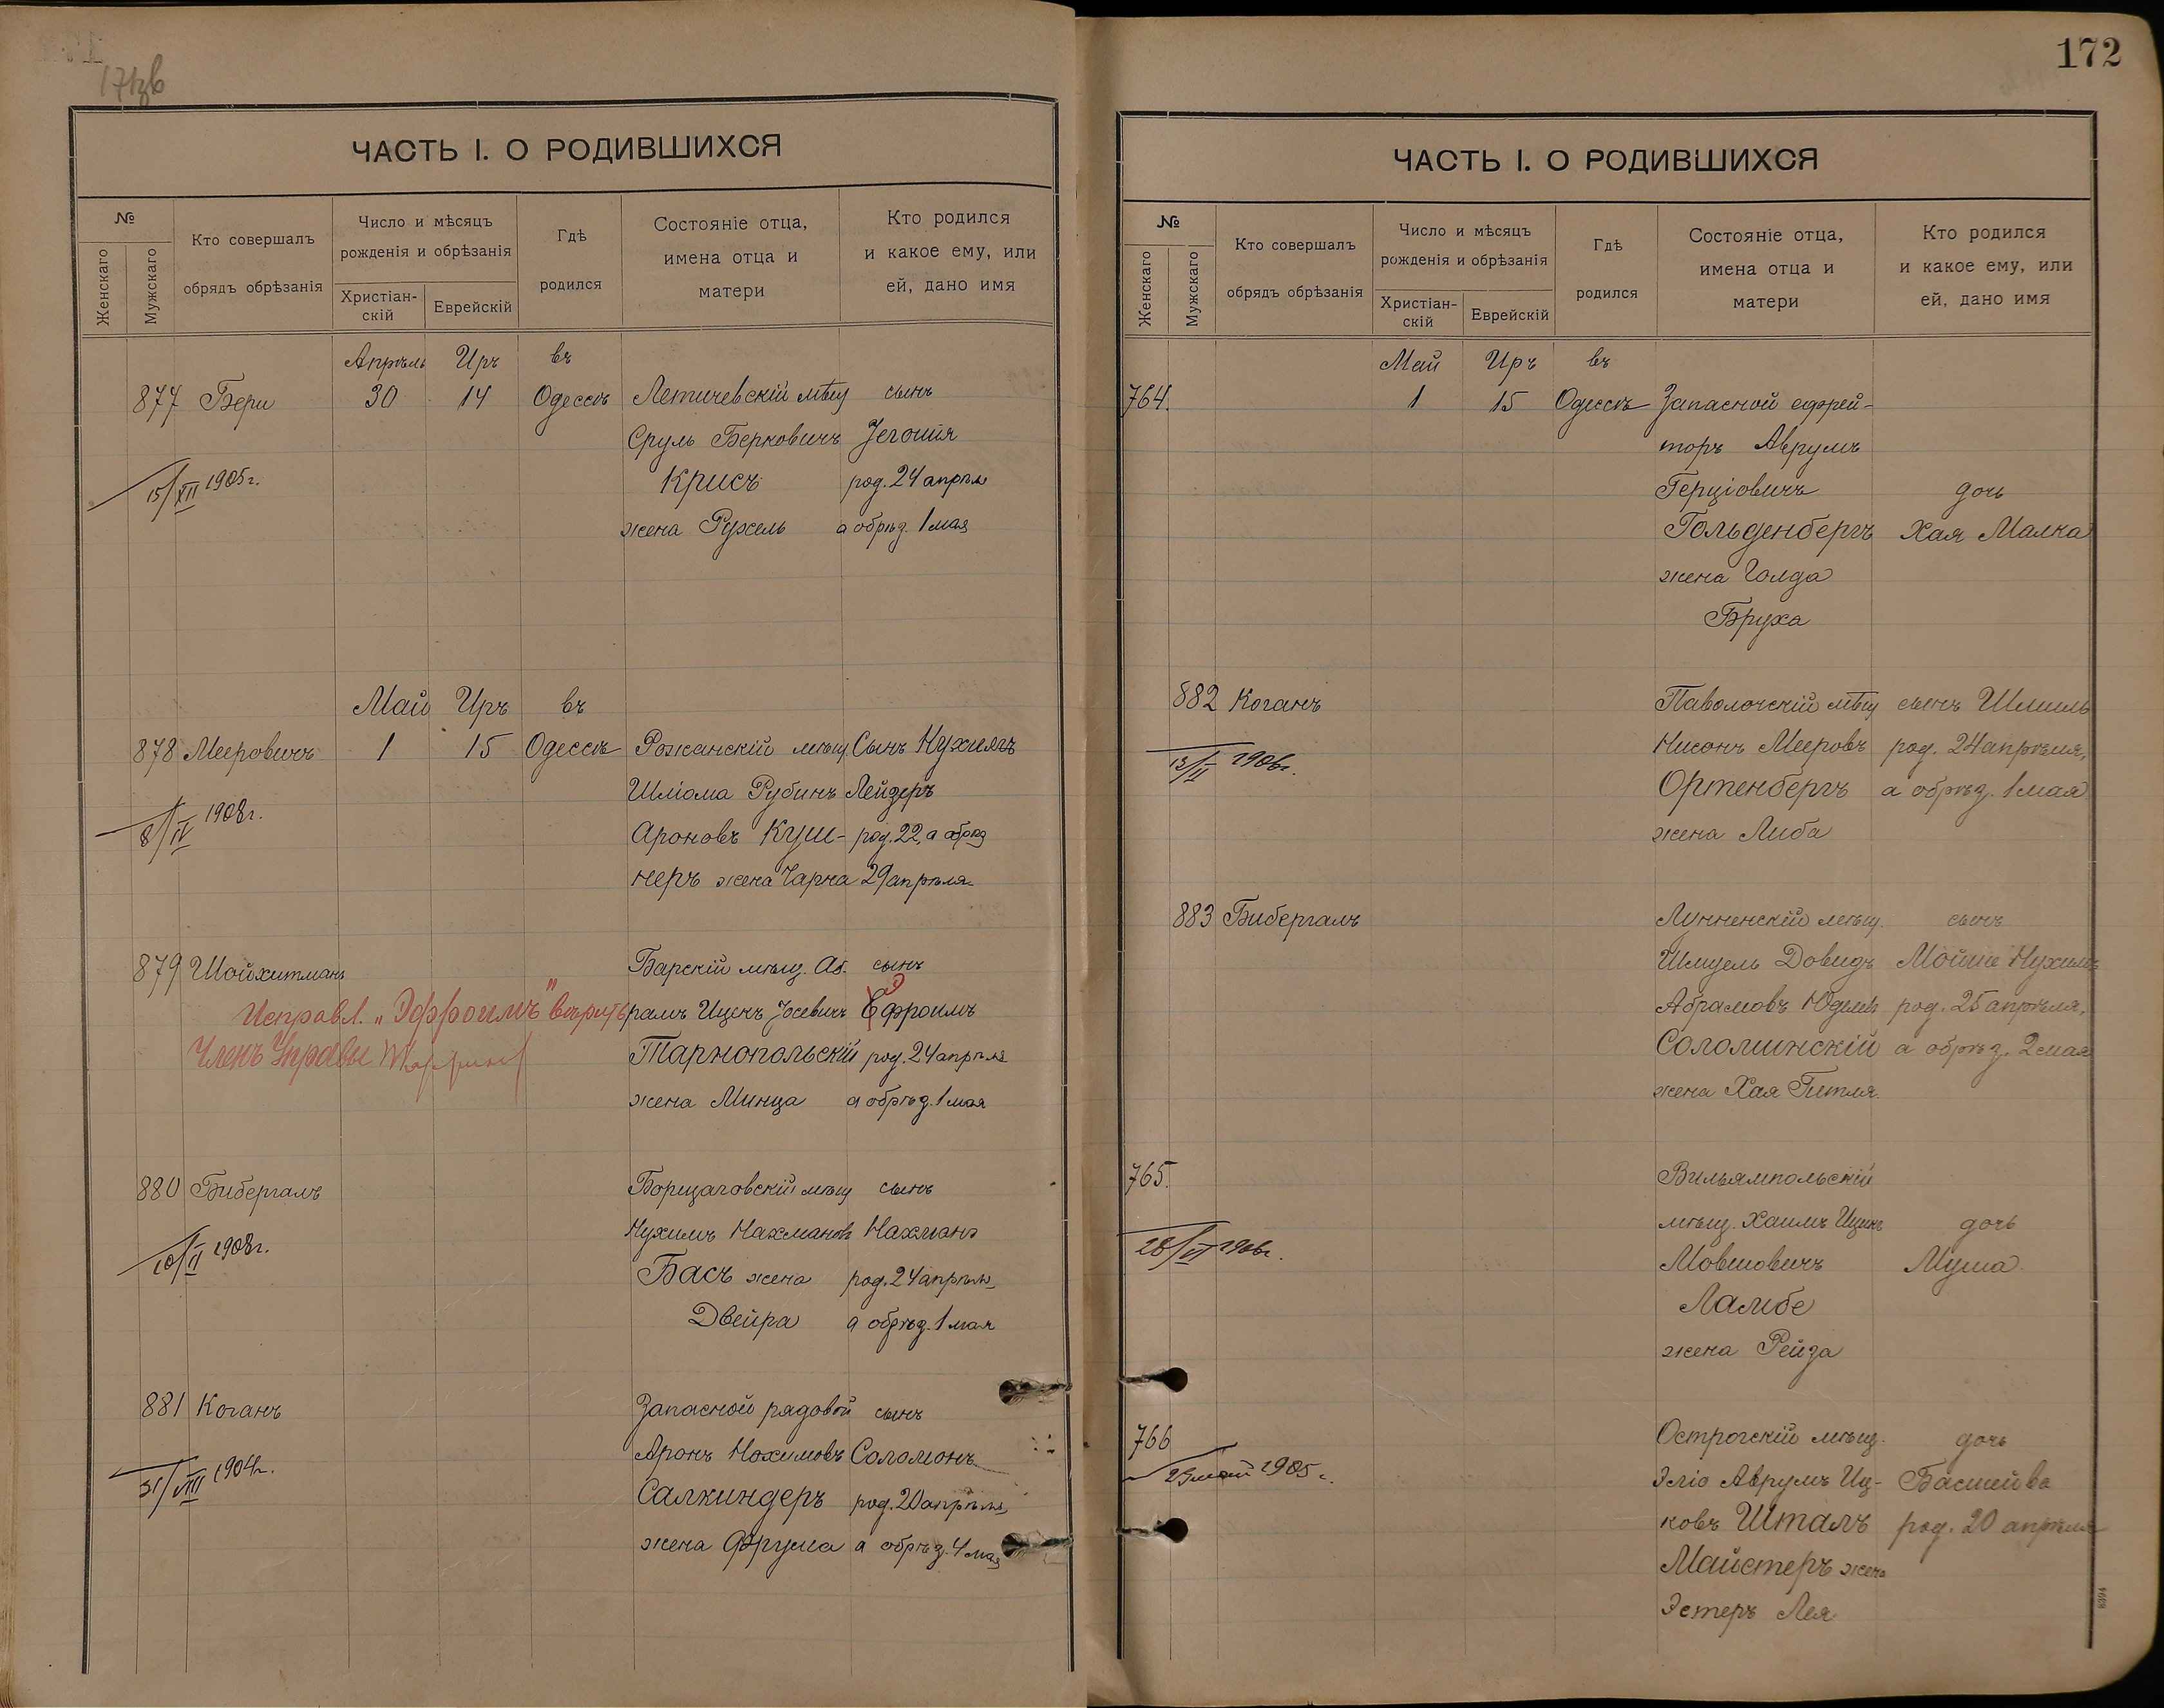 171зв
ЧАСТЬ I. О РОДИВШИХСЯ
№
Женскаго
Мужскаго
Кто совершалъ
обрядъ обрѣзанія
Число и мѣсяцъ
рожденія и обрѣзанія
Христіан-
скій
Еврейскій
Гдѣ
родился
Состояніе отца,
имена отца и
матери
Кто родился
и какое ему, или
ей, дано имя
Апрѣль Иръ въ
877 Бери 30 14 Одессѣ Летичевскій мѣщ сынъ
Сруль Берковичъ Іегошія
Крисъ род. 24 апрѣл
15/XII 1905г.
жена Рухель а обрѣз. 1 мая
Май Иръ въ
878 Мееровичъ 1 15 Одессѣ Рожанскій мѣщ Сынъ Нухимъ
Шліома Рубинъ Лейзеръ
8/IV 1908г.
Ароновъ Куш- род. 22, а обрѣз
неръ жена Чарна 29 апрѣля
879 Шойхитманъ Барскій мѣщ. Аб- сынъ
Исправл. „Эфроимъ" вѣрить рамъ Ицекъ Іосевичъ Ефроимъ
Э
Членъ Управы
Тарнопольскій род. 24 апрѣля
жена Минца а обрѣз. 1 мая
880 Бибергалъ Борщаговскій мѣщ сынъ
Нухимъ Нахмановъ Нахманъ
10/II 1908г.
Басъ жена род. 24 апрѣля,
Двейра а обрѣз. 1 мая
881 Коганъ Запасной рядовой сынъ
Аронъ Нохимовъ Соломонъ
31/VIII 1904г.
Салкиндеръ род. 20 апрѣля,
жена Фрума а обрѣз. 4 мая
172
ЧАСТЬ I. О РОДИВШИХСЯ
№
Женскаго
Мужскаго
Кто совершалъ
обрядъ обрѣзанія
Число и мѣсяцъ
рожденія и обрѣзанія
Христіан-
скій
Еврейскій
Гдѣ
родился
Состояніе отца,
имена отца и
матери
Кто родился
и какое ему, или
ей, дано имя
Май Иръ въ
764. 1 15 Одессѣ Запасной ефрей-
торъ Аврумъ
Герціовичъ дочь
Гольденбергъ Хая Малка
жена Голда
Бруха
882 Коганъ Паволочскій мѣщ сынъ Шмиль
Нисонъ Мееровъ род. 24 апрѣля,
13/II 1906г.
Ортенбергъ а обрѣз. 1 мая
жена Либа
883 Бибергалъ Лунненскій мѣщ. сынъ
Шмуель Довидъ Мойше Нухимъ
Абрамовъ Юдинъ род. 25 апрѣля,
Соломинскій а обрѣз. 2 мая
жена Хая Гитля
765. Вильямпольскій
мѣщ. Хаимъ Ицикъ дочь
28/VI 1906г.
Мовшовичъ Муша
Ламбе
жена Рейза
766 Острогскій мѣщ. дочь
29 май 1905 г.
Эліо Аврумъ Иц- Басшейва
ковъ Шталь род. 20 апрѣля
Майстеръ жена
Эстеръ Лея